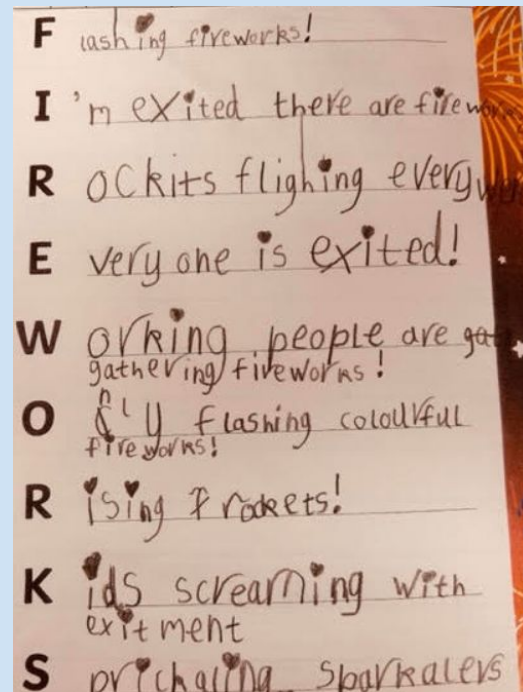 Flashing fireworks!
I'm exited there are firewor
Rockits flighing everyw
Every one is exited!
Working people are gat
gathering fireworks!
Only flashing colourful
fireworks!
Rising rockets!
Kids screaming with
exitment
Sprichaling sparkalers